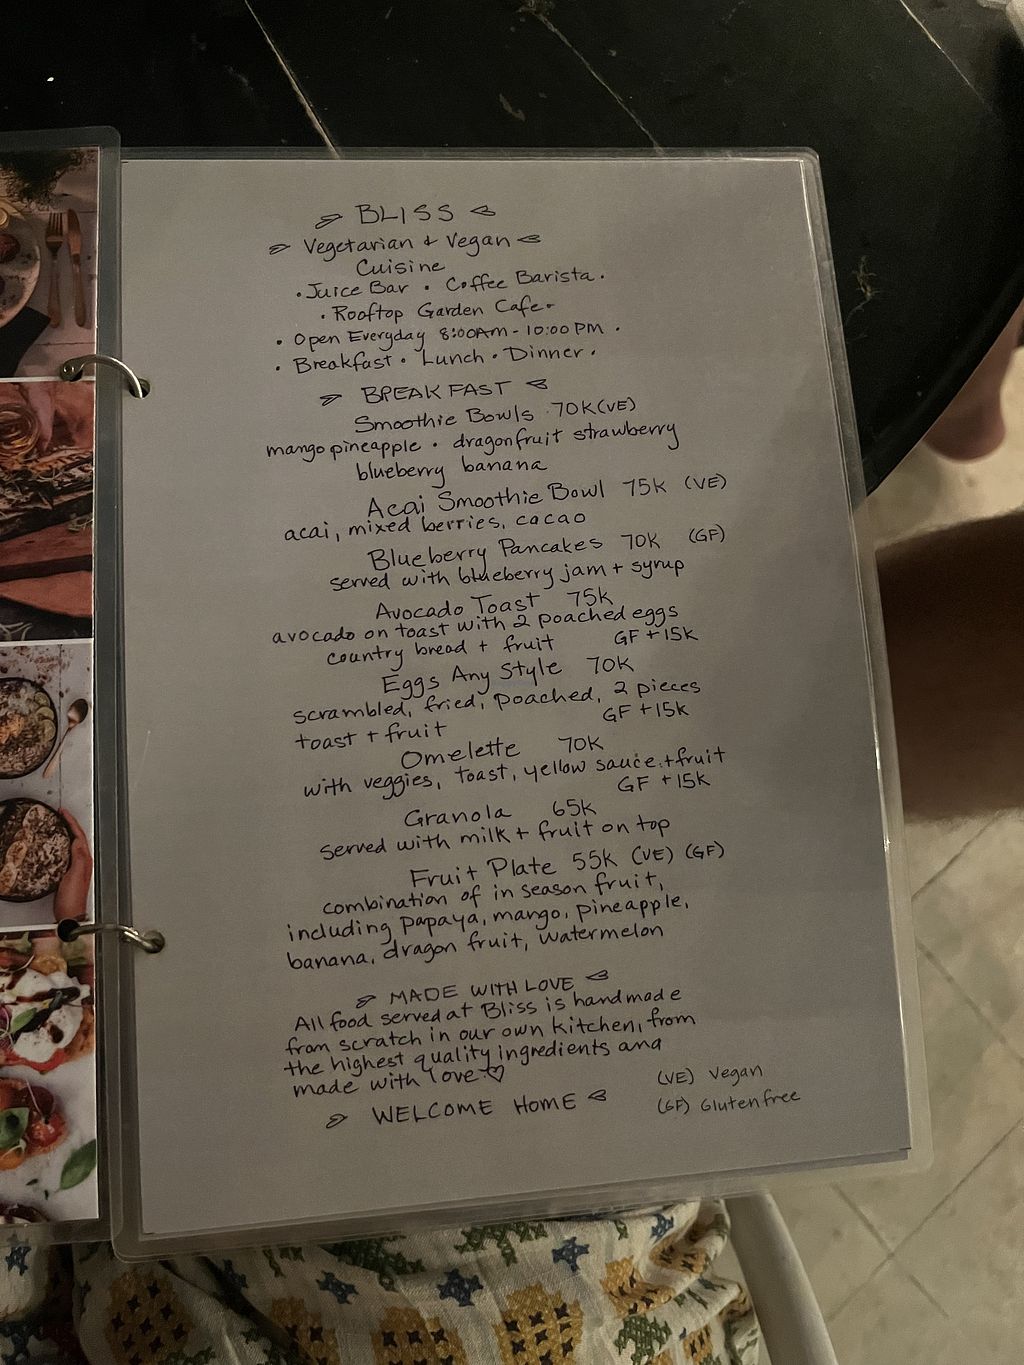 BLISS
Vegetarian & Vegan
Cuisine
• Juice Bar • Coffee Barista •
• Rooftop Garden Cafe •
• Open Everyday 8:00AM - 10:00 PM •
• Breakfast • Lunch • Dinner •
BREAKFAST
Smoothie Bowls 70K (VE)
mango pineapple • dragonfruit strawberry
blueberry banana
Acai Smoothie Bowl 75K (VE)
acai, mixed berries, cacao
Blueberry Pancakes 70K (GF)
served with blueberry jam + syrup
Avocado Toast 75K
avocado on toast with 2 poached eggs
country bread + fruit GF +15K
Eggs Any Style 70K
scrambled, fried, poached, 2 pieces
toast + fruit GF +15K
Omelette 70K
with veggies, toast, yellow sauce + fruit
GF +15K
Granola 65K
served with milk + fruit on top
Fruit Plate 55K (VE) (GF)
combination of in season fruit,
including papaya, mango, pineapple,
banana, dragon fruit, watermelon
MADE WITH LOVE
All food served at Bliss is handmade
from scratch in our own kitchen, from
the highest quality ingredients and
made with love ♡
WELCOME HOME
(VE) Vegan
(GF) Gluten free